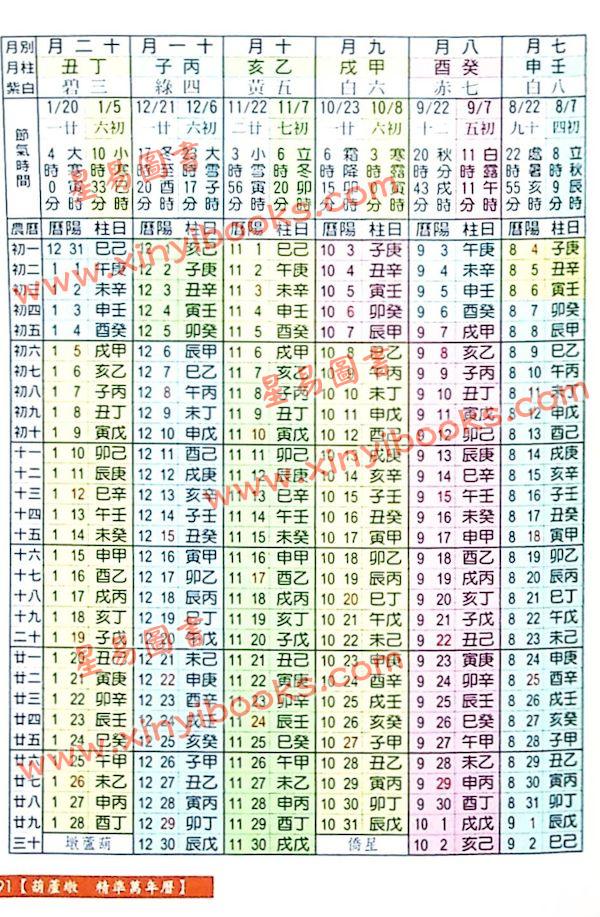 月別 月二十 月一十 月十 月九 月八 月七
月柱 丑丁 子丙 亥乙 戌甲 酉癸 申壬
紫白 碧三 綠四 黃五 白六 赤七 白八
節氣時間
1/20 1/5 12/21 12/6 11/22 11/7 10/23 10/8 9/22 9/7 8/22 8/7
一廿 六初 一廿 六初 二廿 七初 一廿 六初 二十 五初 九十 四初
大寒 4時0分
小寒 10時33分
冬至 17時20分
大雪 23時17分
小雪 3時56分
立冬 6時20分
霜降 6時15分
寒露 3時0分
秋分 20時43分
白露 11時11分
處暑 22時55分
立秋 8時9分
農曆 曆陽 柱日 曆陽 柱日 曆陽 柱日 曆陽 柱日 曆陽 柱日 曆陽 柱日
初一 12 31 巳己 12 1 亥己 11 1 巳己 10 3 子庚 9 3 午庚 8 4 子庚
初二 1 1 午庚 12 2 子庚 11 2 午庚 10 4 丑辛 9 4 未辛 8 5 丑辛
初三 1 2 未辛 12 3 丑辛 11 3 未辛 10 5 寅壬 9 5 申壬 8 6 寅壬
初四 1 3 申壬 12 4 寅壬 11 4 申壬 10 6 卯癸 9 6 酉癸 8 7 卯癸
初五 1 4 酉癸 12 5 卯癸 11 5 酉癸 10 7 辰甲 9 7 戌甲 8 8 辰甲
初六 1 5 戌甲 12 6 辰甲 11 6 戌甲 10 8 巳乙 9 8 亥乙 8 9 巳乙
初七 1 6 亥乙 12 7 巳乙 11 7 亥乙 10 9 午丙 9 9 子丙 8 10 午丙
初八 1 7 子丙 12 8 午丙 11 8 子丙 10 10 未丁 9 10 丑丁 8 11 未丁
初九 1 8 丑丁 12 9 未丁 11 9 丑丁 10 11 申戊 9 11 寅戊 8 12 申戊
初十 1 9 寅戊 12 10 申戊 11 10 寅戊 10 12 酉己 9 12 卯己 8 13 酉己
十一 1 10 卯己 12 11 酉己 11 11 卯己 10 13 戌庚 9 13 辰庚 8 14 戌庚
十二 1 11 辰庚 12 12 戌庚 11 12 辰庚 10 14 亥辛 9 14 巳辛 8 15 亥辛
十三 1 12 巳辛 12 13 亥辛 11 13 巳辛 10 15 子壬 9 15 午壬 8 16 子壬
十四 1 13 午壬 12 14 子壬 11 14 午壬 10 16 丑癸 9 16 未癸 8 17 丑癸
十五 1 14 未癸 12 15 丑癸 11 15 未癸 10 17 寅甲 9 17 申甲 8 18 寅甲
十六 1 15 申甲 12 16 寅甲 11 16 申甲 10 18 卯乙 9 18 酉乙 8 19 卯乙
十七 1 16 酉乙 12 17 卯乙 11 17 酉乙 10 19 辰丙 9 19 戌丙 8 20 辰丙
十八 1 17 戌丙 12 18 辰丙 11 18 戌丙 10 20 巳丁 9 20 亥丁 8 21 巳丁
十九 1 18 亥丁 12 19 巳丁 11 19 亥丁 10 21 午戊 9 21 子戊 8 22 午戊
二十 1 19 子戊 12 20 午戊 11 20 子戊 10 22 未己 9 22 丑己 8 23 未己
廿一 1 20 丑己 12 21 未己 11 21 丑己 10 23 申庚 9 23 寅庚 8 24 申庚
廿二 1 21 寅庚 12 22 申庚 11 22 寅庚 10 24 酉辛 9 24 卯辛 8 25 酉辛
廿三 1 22 卯辛 12 23 酉辛 11 23 卯辛 10 25 戌壬 9 25 辰壬 8 26 戌壬
廿四 1 23 辰壬 12 24 戌壬 11 24 辰壬 10 26 亥癸 9 26 巳癸 8 27 亥癸
廿五 1 24 巳癸 12 25 亥癸 11 25 巳癸 10 27 子甲 9 27 午甲 8 28 子甲
廿六 1 25 午甲 12 26 子甲 11 26 午甲 10 28 丑乙 9 28 未乙 8 29 丑乙
廿七 1 26 未乙 12 27 丑乙 11 27 未乙 10 29 寅丙 9 29 申丙 8 30 寅丙
廿八 1 27 申丙 12 28 寅丙 11 28 申丙 10 30 卯丁 9 30 酉丁 8 31 卯丁
廿九 1 28 酉丁 12 29 卯丁 11 29 酉丁 10 31 辰戊 10 1 戌戊 9 1 辰戊
三十 墩蘆葫 12 30 辰戊 11 30 戌戊 僑星 10 2 亥己 9 2 巳己
91【葫蘆墩 精準萬年曆】
星易圖書
www.xinyibooks.com
星易圖書
www.xinyibooks.com
星易圖書
www.xinyibooks.com
星易圖書
www.xinyibooks.com